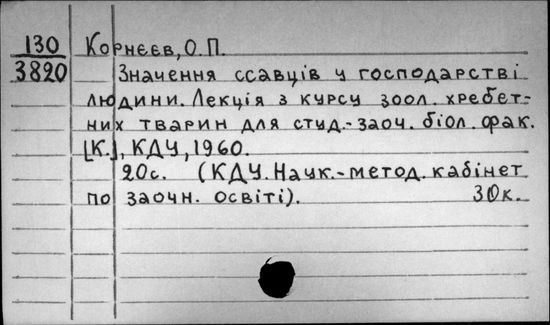 130 Корнєєв, О.П.
3820 Значення ссавців у господарстві
людини. Лекція з курсу зоол. хребет-
них тварин для студ.-заоч. біол. фак.
[К.], КДУ, 1960.
20с. (КДУ. Наук.-метод. кабінет
по заочн. освіті). 30к.